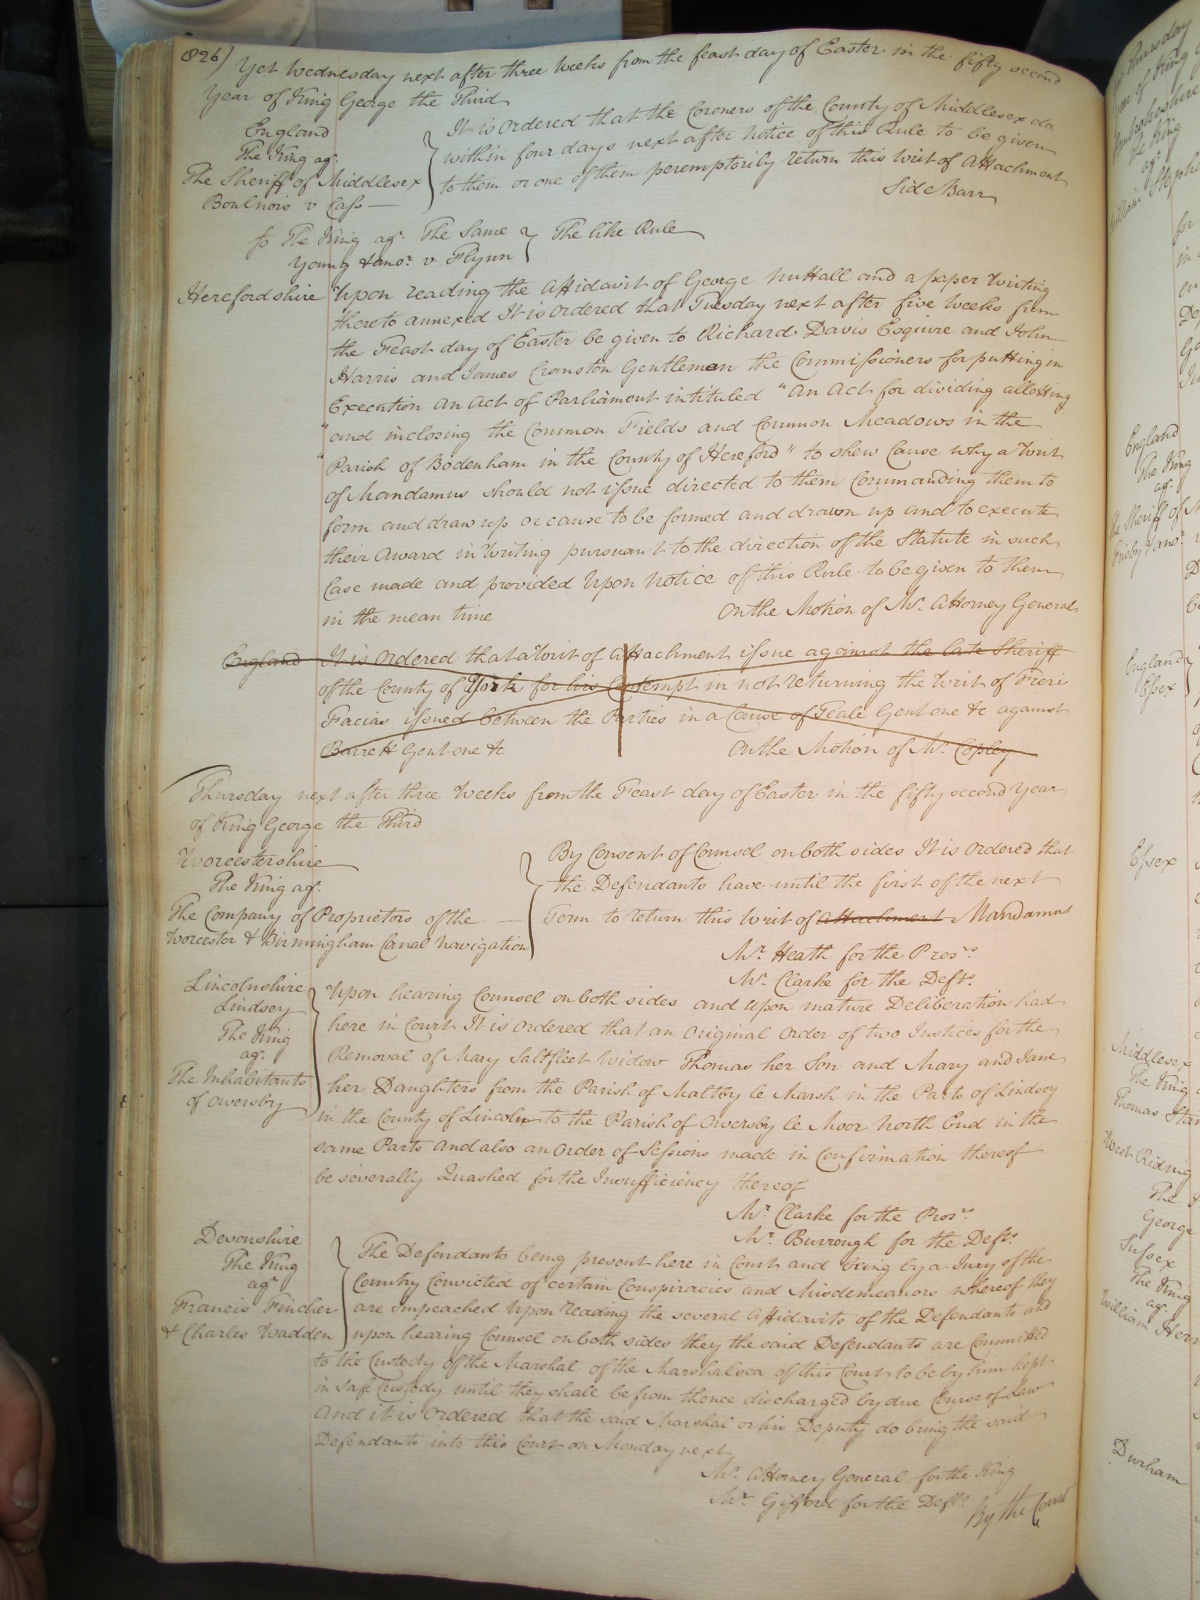 826)
Yet Wednesday next after three Weeks from the feast day of Easter in the fifty second
Year of King George the Third
England
The King agt.
The Sheriff of Middlesex
Boulnois v Cass
It is Ordered that the Coroners of the County of Middlesex do
within four days next after Notice of this Rule to be given
to them or one of them peremptorily return this Writ of Attachment
Side Barr
So The King agt. The Same
Young & anor. v. Flynn
The like Rule
Herefordshire
Upon reading the Affidavit of George Nuttall and a paper Writing
thereto annexed It is Ordered that Tuesday next after five Weeks from
the Feast day of Easter be given to Richard Davis Esquire and John
Harris and James Cranston Gentlemen the Commissioners for putting in
Execution an Act of Parliament intituled "An Act for dividing allotting
"and inclosing the Common Fields and Common Meadows in the
"Parish of Bodenham in the County of Hereford" to shew Cause why a Writ
of Mandamus should not issue directed to them Commanding them to
form and draw up or cause to be formed and drawn up and to execute
their Award in Writing pursuant to the direction of the Statute in such
Case made and provided Upon Notice of this Rule to be given to them
in the mean time
On the Motion of Mr. Attorney General
England It is Ordered that a Writ of Attachment issue against the late Sheriff
of the County of York for his Contempt in not returning the Writ of Fieri
Facias issued between the Parties in a Cause of Teale Gent one &c against
Barrett Gent one &c
On the Motion of Mr. Copley
Thursday next after three Weeks from the Feast day of Easter in the fifty second Year
of King George the Third
Worcestershire
The King agt.
The Company of Proprietors of the
Worcester & Birmingham Canal Navigation
By Consent of Counsel on both sides It is Ordered that
the Defendants have until the first of the next
Term to return this Writ of Attachment Mandamus
Mr. Heath for the Pros.
Mr. Clarke for the Defts.
Lincolnshire
Lindsey
The King
agt.
The Inhabitants
of Owersby
Upon hearing Counsel on both sides and upon mature Deliberation had
here in Court It is Ordered that an Original Order of two Justices for the
Removal of Mary Saltfleet Widow Thomas her Son and Mary and Jane
her Daughters from the Parish of Maltby le Marsh in the Parts of Lindsey
in the County of Lincoln to the Parish of Owersby le Moor North End in the
same Parts and also an Order of Sessions made in Confirmation thereof
be severally Quashed for the Insufficiency thereof
Mr. Clarke for the Pros.
Mr. Burrough for the Defts.
Devonshire
The King
agt.
Francis Fincher
& Charles Wadden
The Defendants being present here in Court and being by a Jury of the
Country Convicted of certain Conspiracies and Misdemeanors whereof they
are Impeached Upon reading the several Affidavits of the Defendants and
upon hearing Counsel on both sides they the said Defendants are Committed
to the Custody of the Marshal of the Marshalsea of this Court to be by him kept
in safe custody until they shall be from thence discharged by due Course of Law
And it is Ordered that the said Marshal or his Deputy do bring the said
Defendants into this Court on Monday next
Mr. Attorney General for the King
Mr. Gifford for the Defts.
By the Court
England
The King
agt.
England
Essex
Essex
Middlesex
The King
Thomas
West Riding
The
George
Sussex
The King
agt.
William
Durham